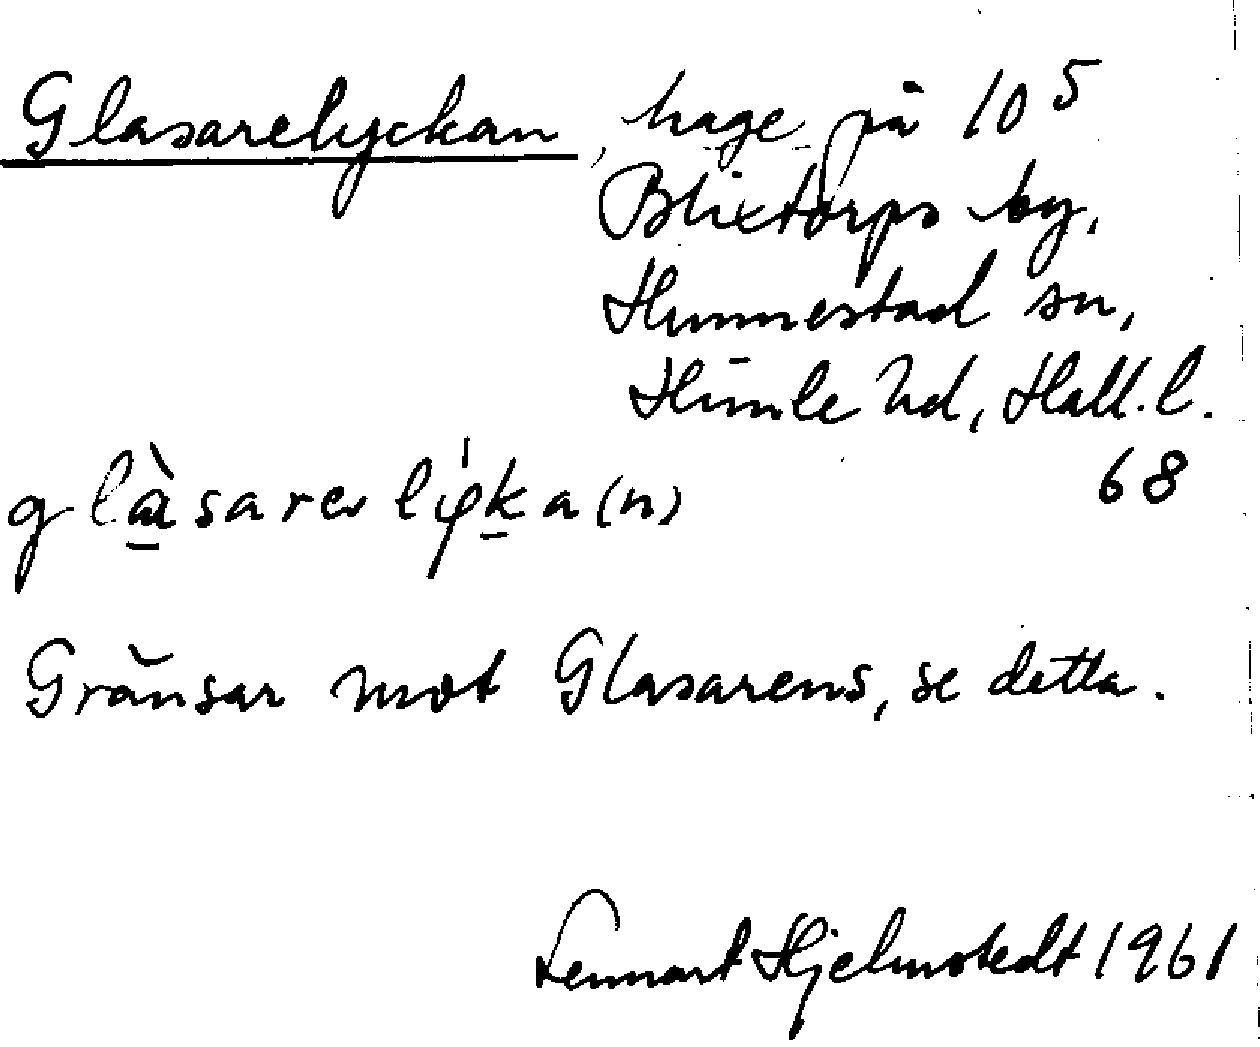 Glasarelyckan, hage på 10⁵
Blixtorps by,
Hunnestad sn,
Himle hd, Hall. l.
68
Gränsar mot Glasarens, se detta.
Lennart Hjelmstedt 1961